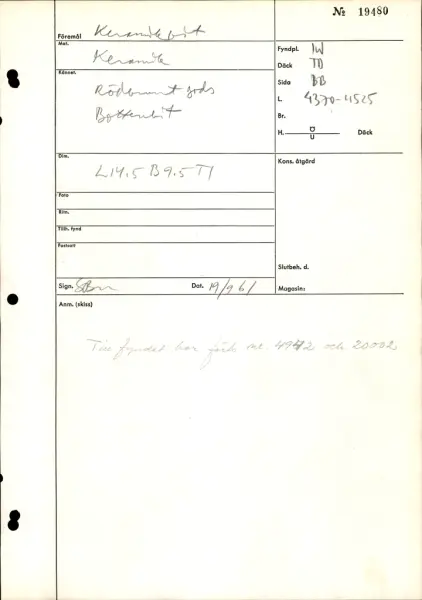 № 19480
Föremål Keramikbit
Mat. Keramik
Kännet. Rödbrunt gods
Bottenbit
Dim. L 14,5 B 9,5 T 1
Foto
Ritn.
Tillh. fynd
Fastsatt
Sign. Dat. 19/9 61
Fyndpl. IW
Däck TD
Sida BB
L. 4370-4525
Br.
H. Ö/U Däck
Kons. åtgärd
Slutbeh. d.
Magasin:
Anm. (skiss)
Till fyndet har förts nr. 4942 och 20002